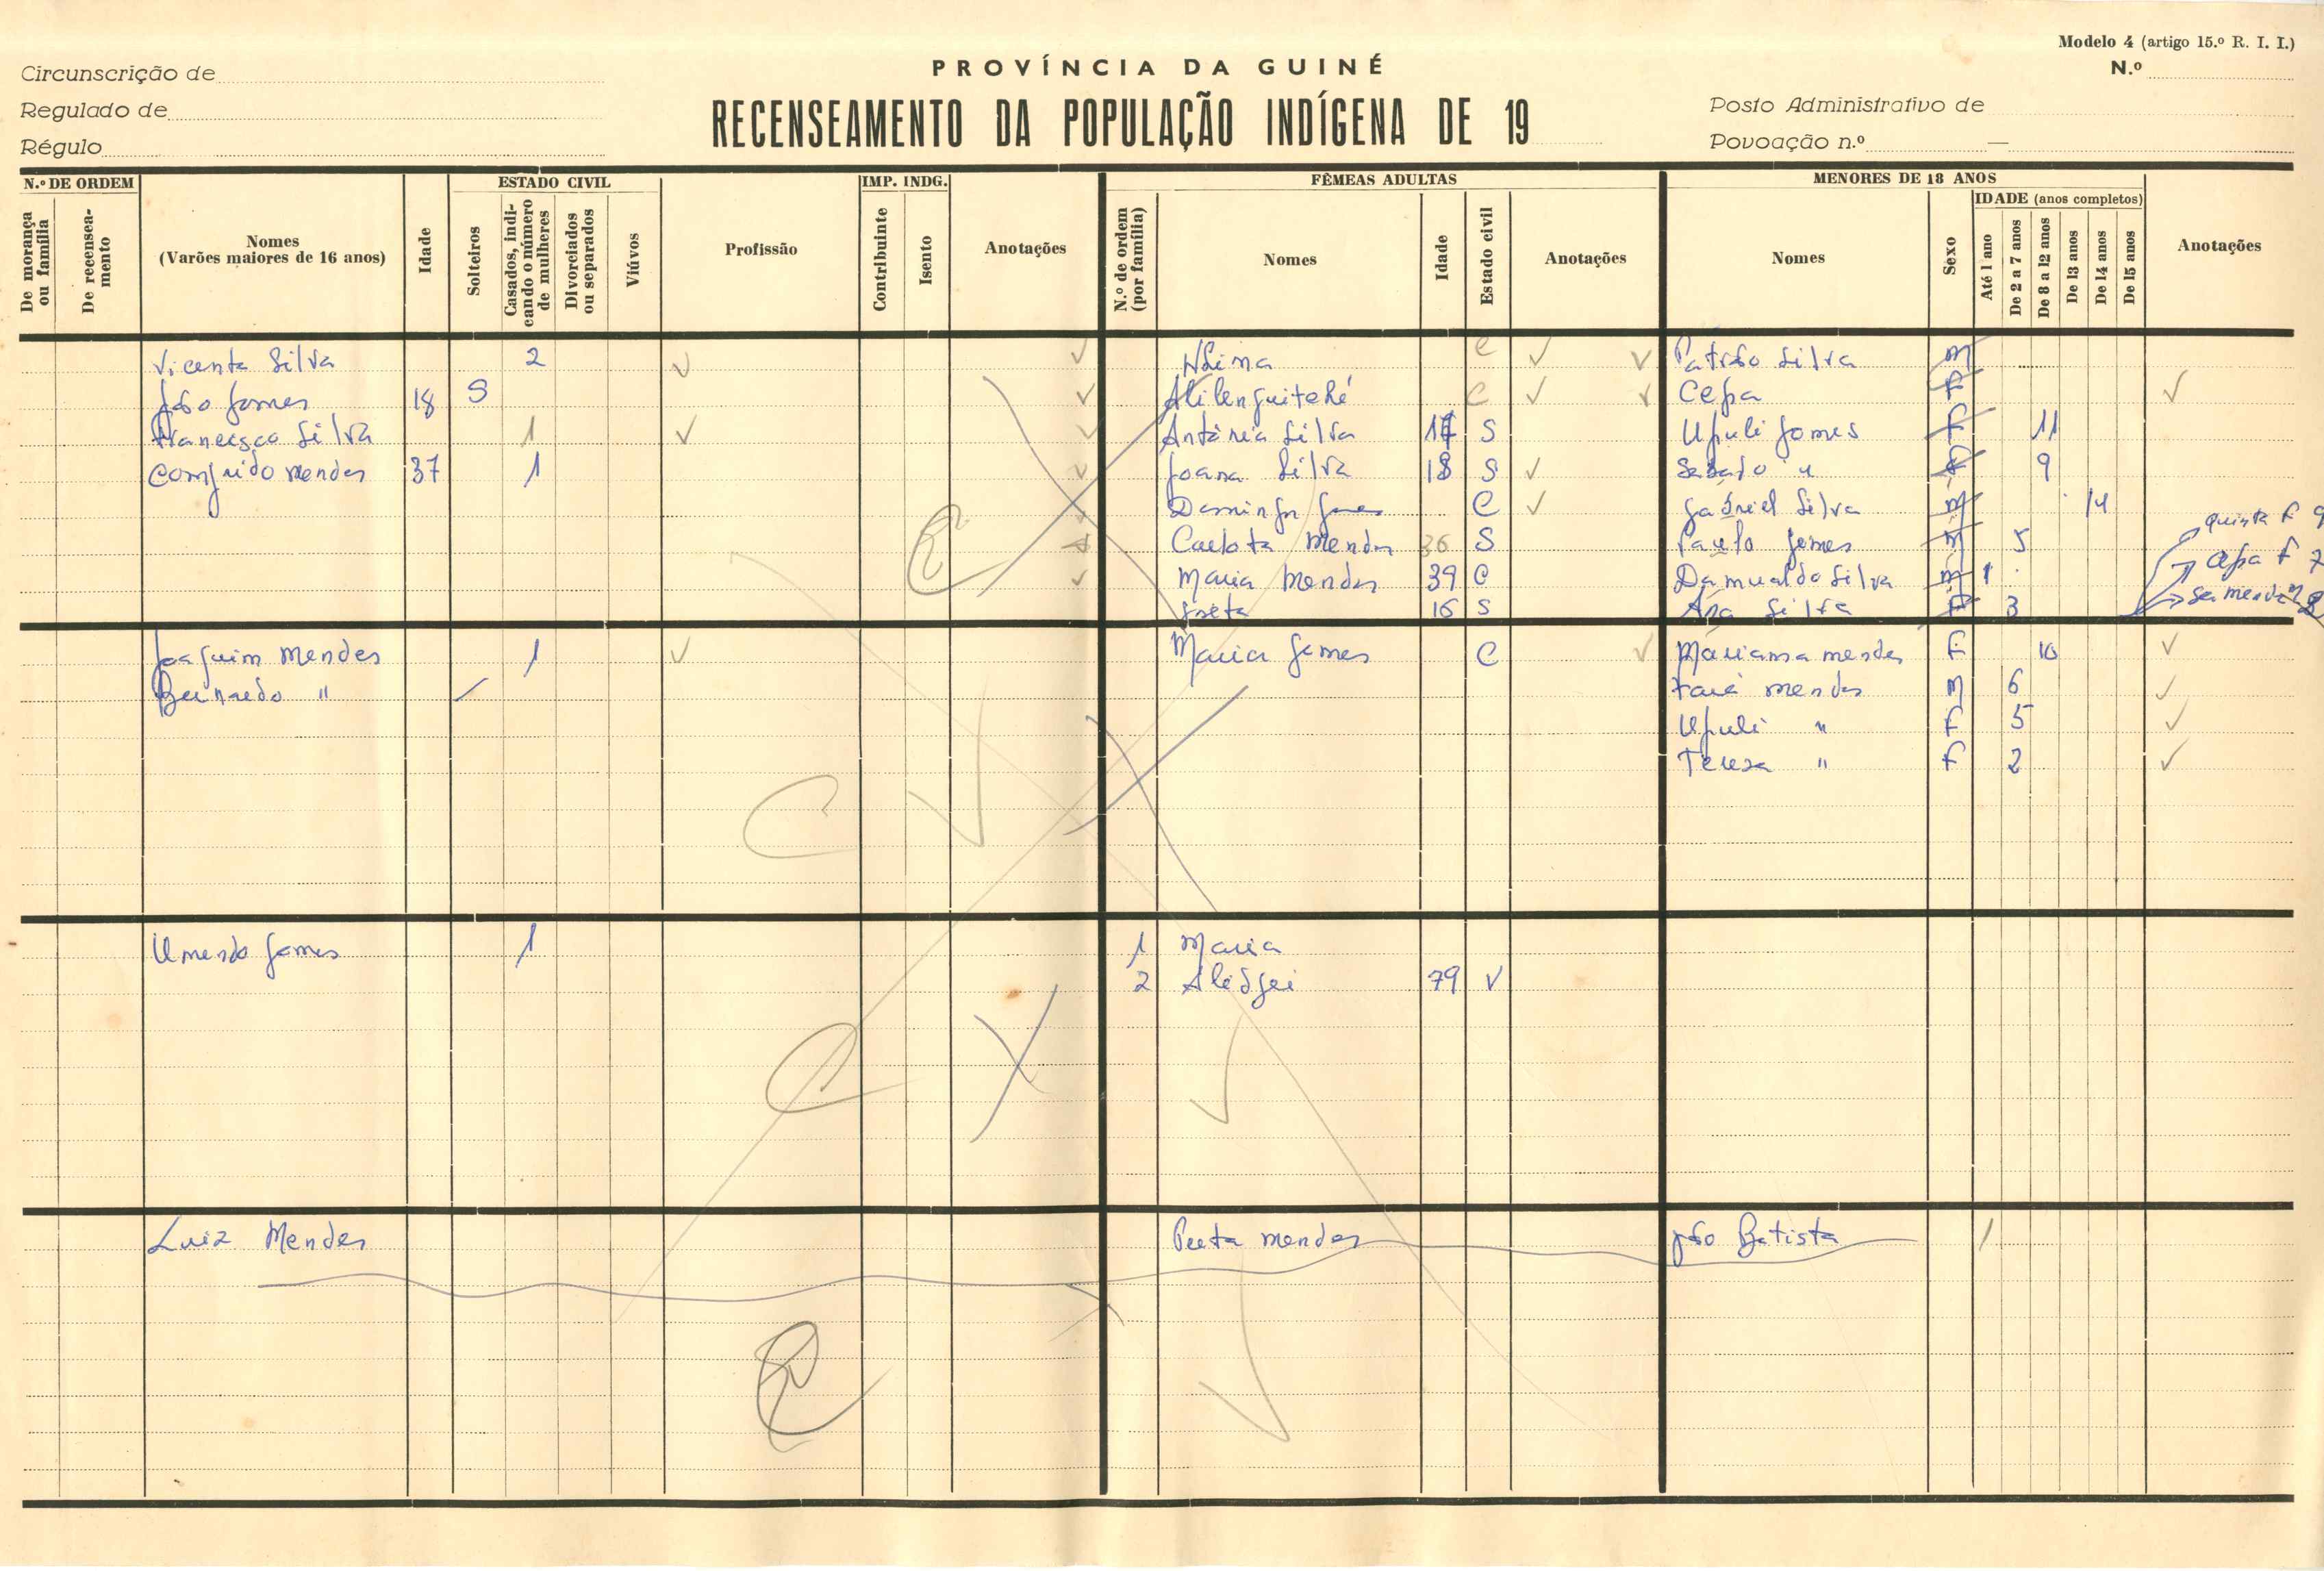 Modelo 4 (artigo 15.º R. I. I.)
N.º
PROVÍNCIA DA GUINÉ
RECENSEAMENTO DA POPULAÇÃO INDÍGENA DE 19
Circunscrição de
Regulado de
Régulo
Posto Administrativo de
Povoação n.º —
N.º DE ORDEM
De morança ou família
De recenseamento
Nomes
(Varões maiores de 16 anos)
Idade
ESTADO CIVIL
Solteiros
Casados, indicando o número de mulheres
Divorciados ou separados
Viúvos
Profissão
IMP. INDG.
Contribuinte
Isento
Anotações
FÊMEAS ADULTAS
N.º de ordem (por família)
Nomes
Idade
Estado civil
Anotações
MENORES DE 18 ANOS
Nomes
Sexo
IDADE (anos completos)
Até 1 ano
De 2 a 7 anos
De 8 a 12 anos
De 13 anos
De 14 anos
De 15 anos
Anotações
Vicente Silva 2 C Silva M
João Gomes 18 S C Cepa F
Francisco Silva 1 Antónia Silva S Upuli Gomes F 11
Mendes 37 1 Joana Silva 18 S Sabado " F 9
Dominga Gomes C Gabriel Silva M 14
Carlota Mendes 36 S Paulo Gomes M 5
quinta F 9
Maria Mendes 39 C Damualdo Silva M 1
apa F 7
16 S Ana Silva F 3
Joaquim Mendes 1 Maria Gomes C Mariama mendes F 10
Bernardo " mendes M 6
Upuli " F 5
Teresa " F 2
Gomes 1 1 Maria
2 79 V
Luiz Mendes mendes João Batista 1